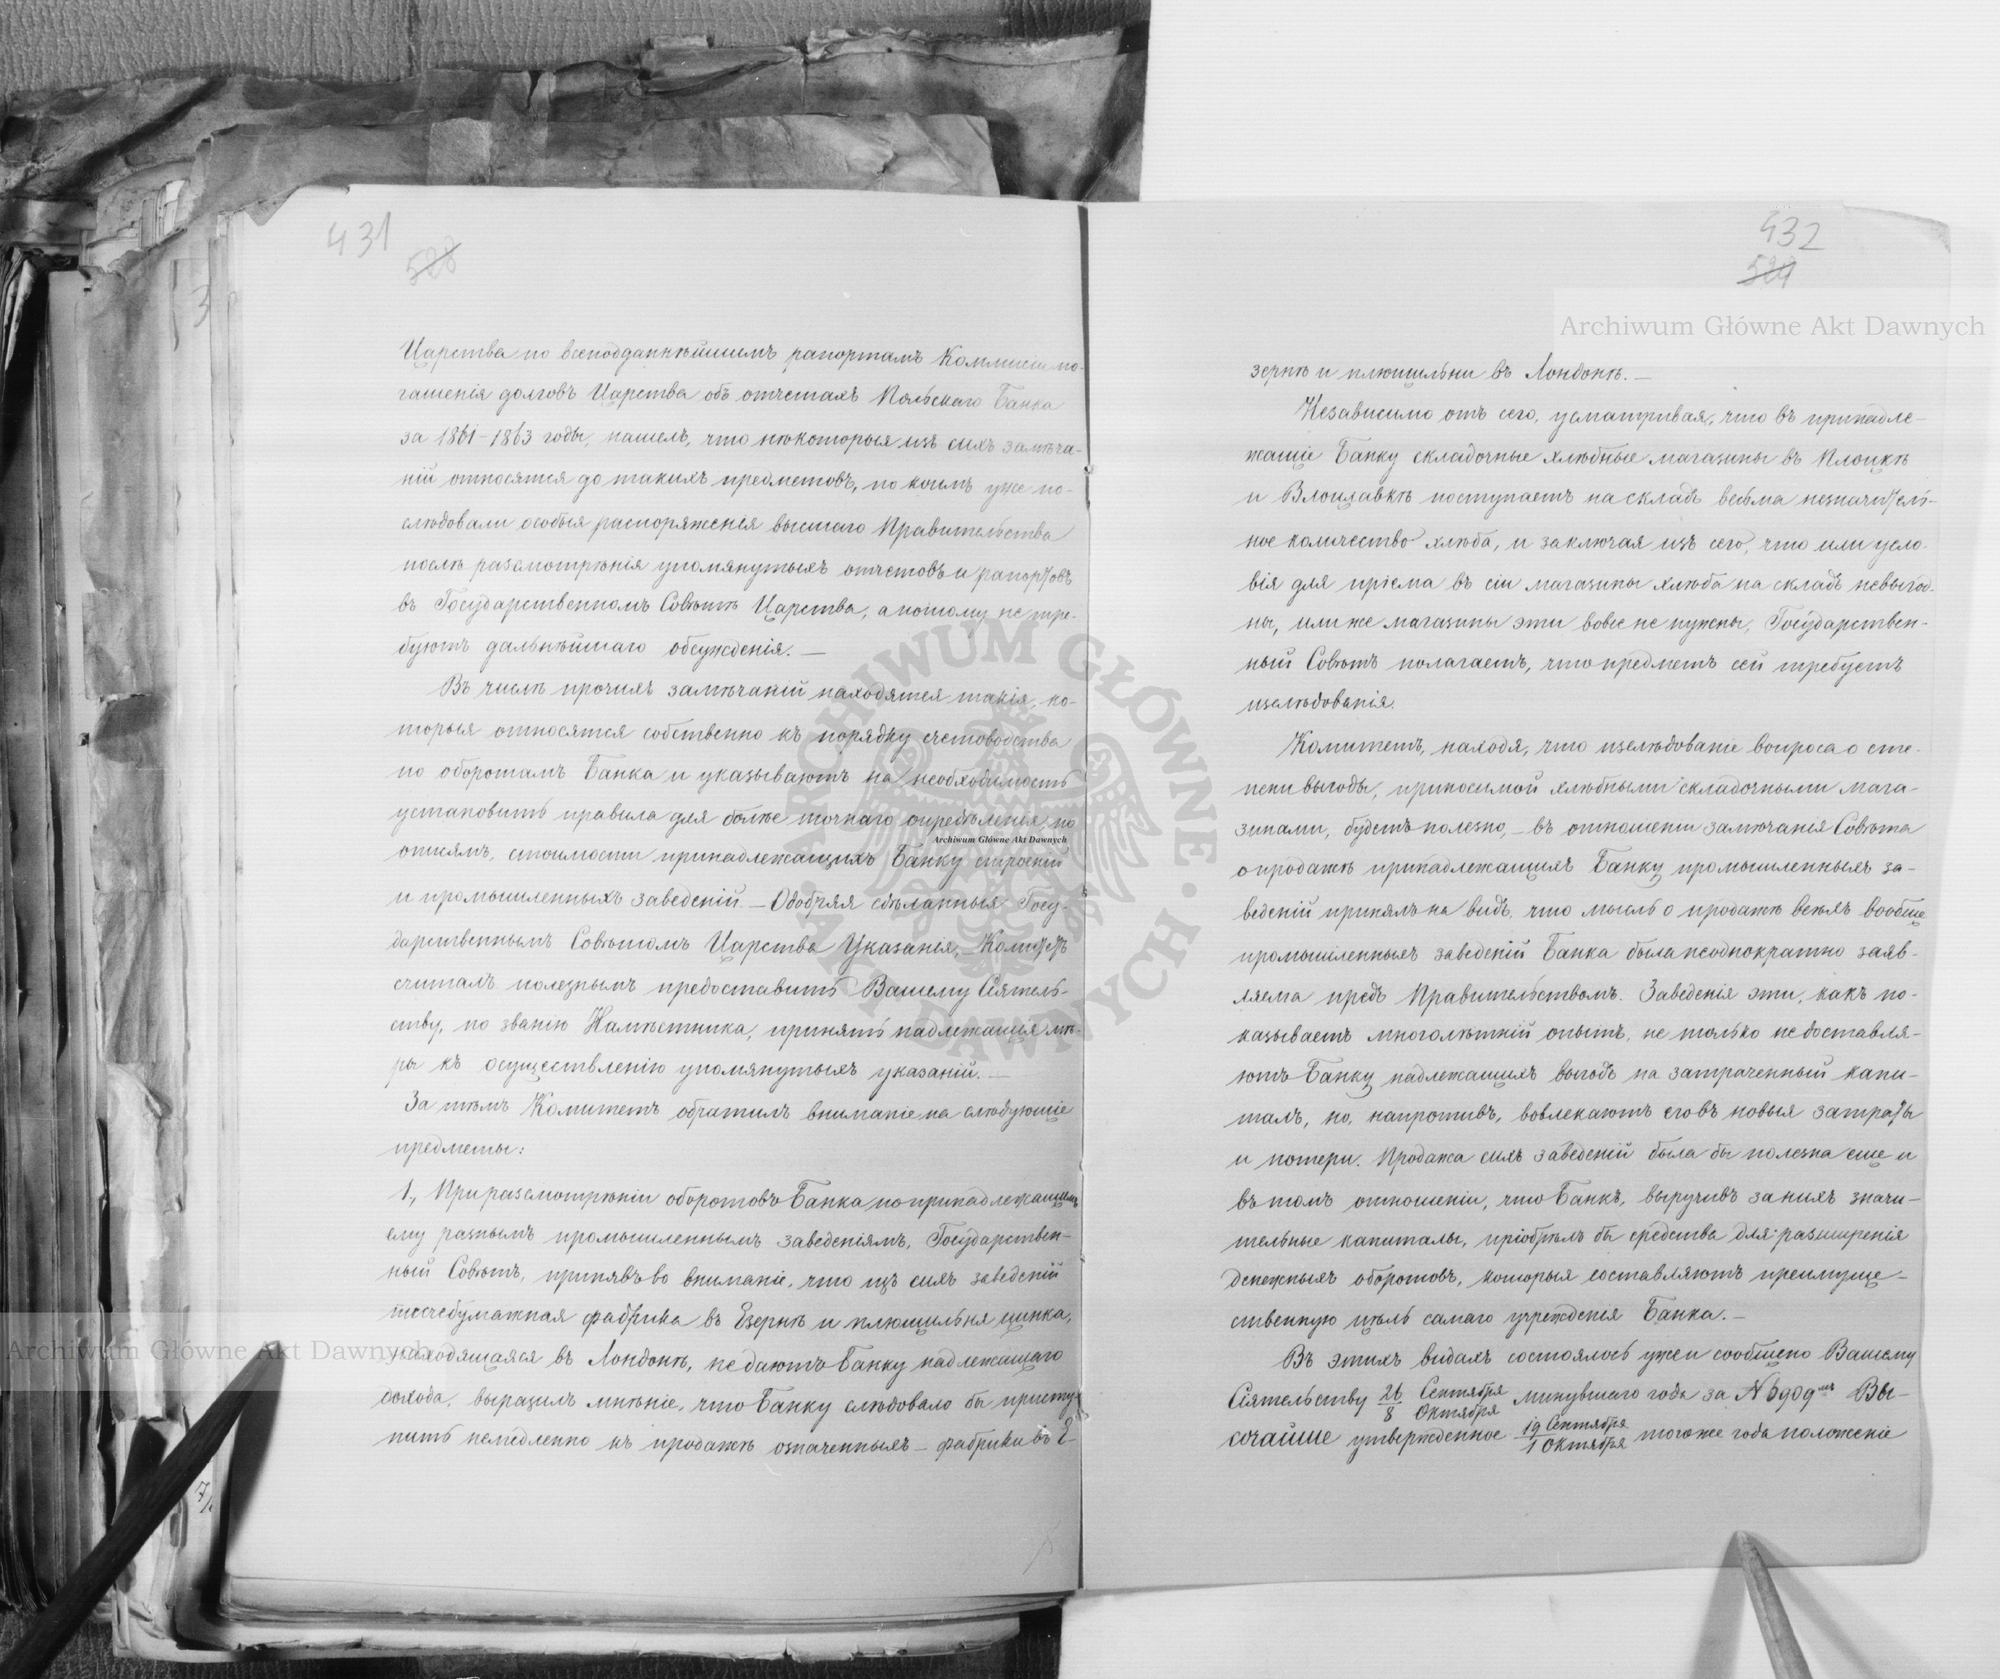 431
528
Царства по всеподданнѣйшимъ рапортамъ Коммисіи по-
гашенія долговъ Царства объ отчетахъ Польскаго Банка
за 1861–1863 годы, нашелъ, что нѣкоторыя изъ сихъ замѣча-
ній относятся до такихъ предметовъ, по коимъ уже по-
слѣдовали особыя распоряженія высшаго Правительства
послѣ разсмотрѣнія упомянутыхъ отчетовъ и рапортовъ
въ Государственномъ Совѣтѣ Царства, а потому не тре-
буютъ дальнѣйшаго обсужденія. —
Въ числѣ прочихъ замѣчаній находятся такія, ко-
торыя относятся собственно къ порядку счетоводства
по оборотамъ Банка и указываютъ на необходимость
установить правила для болѣе точнаго опредѣленія, по
описямъ, стоимости принадлежащихъ Банку строеній
и промышленныхъ заведеній. — Одобряя сдѣланныя Госу-
дарственнымъ Совѣтомъ Царства Указанія, — Комитетъ
считалъ полезнымъ предоставить Вашему Сіятель-
ству, по званію Намѣстника, принять надлежащія мѣ-
ры къ осуществленію упомянутыхъ указаній. —
За тѣмъ Комитетъ обратилъ вниманіе на слѣдующіе
предметы:
1., При разсмотрѣніи оборотовъ Банка по принадлежащимъ
ему разнымъ промышленнымъ заведеніямъ, Государствен-
ный Совѣтъ, принявъ во вниманіе, что изъ сихъ заведеній
писчебумажная фабрика въ Езернѣ и плющильня цинка,
находящаяся въ Лондонѣ, не даютъ Банку надлежащаго
дохода, выразилъ мнѣніе, что Банку слѣдовало бы присту-
пить немедленно къ продажѣ означенныхъ — фабрики въ Е-
432
529
зернѣ и плющильни въ Лондонѣ. —
Независимо отъ сего, усматривая, что въ принадле-
жащіе Банку складочные хлѣбные магазины въ Плоцкѣ
и Влоцлавкѣ поступаетъ на складъ весьма незначитель-
ное количество хлѣба, и заключая изъ сего, что или усло-
вія для пріема въ сіи магазины хлѣба на складъ невыгод-
ны, или же магазины эти вовсе не нужны, Государствен-
ный Совѣтъ полагаетъ, что предметъ сей требуетъ
изслѣдованія.
Комитетъ, находя, что изслѣдованіе вопроса о сте-
пени выгоды, приносимой хлѣбными складочными мага-
зинами, будетъ полезно, — въ отношеніи замѣчанія Совѣта
о продажѣ принадлежащихъ Банку промышленныхъ за-
веденій принялъ на видъ, что мысль о продажѣ всѣхъ вообще
промышленныхъ заведеній Банка была неоднократно заяв-
ляема предъ Правительствомъ. Заведенія эти, какъ по-
казываетъ многолѣтній опытъ, не только не доставля-
ютъ Банку надлежащихъ выгодъ на затраченный капи-
талъ, но, напротивъ, вовлекаютъ его въ новыя затраты
и потери. Продажа сихъ заведеній была бы полезна еще и
въ томъ отношеніи, что Банкъ, выручивъ за нихъ значи-
тельные капиталы, пріобрѣлъ бы средства для разширенія
денежныхъ оборотовъ, которыя составляютъ преимуще-
ственную цѣль самаго учрежденія Банка. —
Въ этихъ видахъ состоялось уже и сообщено Вашему
Сіятельству 26 Сентября / 8 Октября минувшаго года за № 6909мъ Вы-
сочайше утвержденное 19 Сентября / 1 Октября тогоже года положеніе
Archiwum Główne Akt Dawnych
Archiwum Główne Akt Dawnych
Archiwum Główne Akt Dawnych
ARCHIWUM GŁÓWNE · AKT DAWNYCH ·